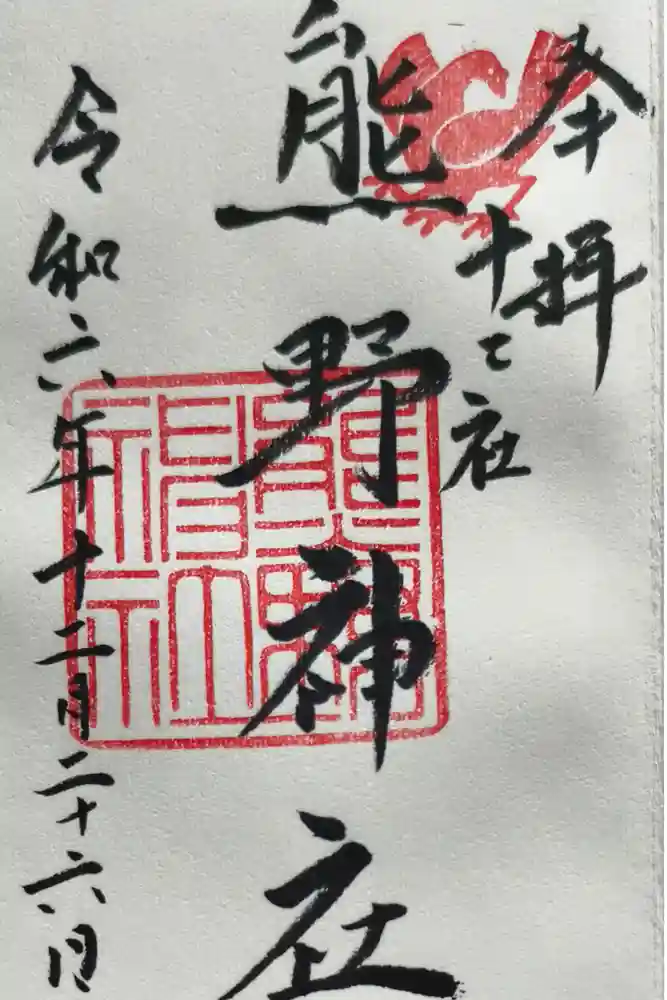 奉拝
十二社
熊野神社
令和六年十二月二十六日
熊野神社